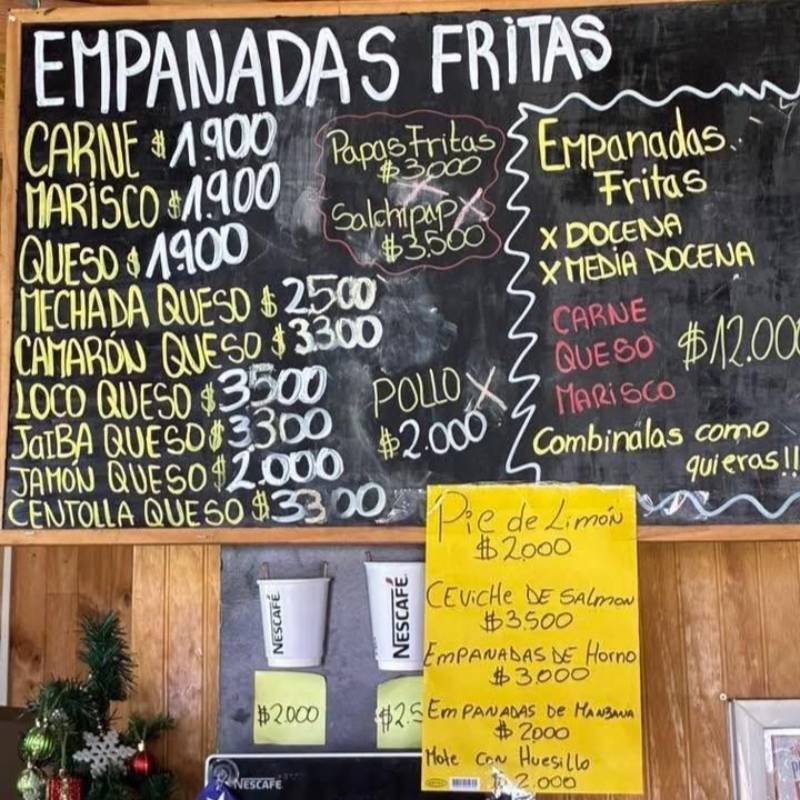 EMPANADAS FRITAS
CARNE $1.900
MARISCO $1.900
QUESO $1900
MECHADA QUESO $2500
CAMARÓN QUESO $3300
LOCO QUESO $3500
JaIBA QUESO $3300
JAMÓN QUESO $2.000
CENTOLLA QUESO $3300
Papas Fritas
$3.000
Salchipap
$3.500
POLLO
$2.000
Empanadas
Fritas
X DOCENA
X MEDIA DOCENA
CARNE
QUESO $12.000
MARISCO
Combinalas como
quieras!!
Pie de Limón
$2000
CEVICHE DE SALMON
$3.500
EMPANADAS DE Horno
$3.000
EMPANADAS DE MANZANA
$2000
Mote con Huesillo
2.000
NESCAFÉ
NESCAFÉ
$2.000
$2.5
NESCAFÉ